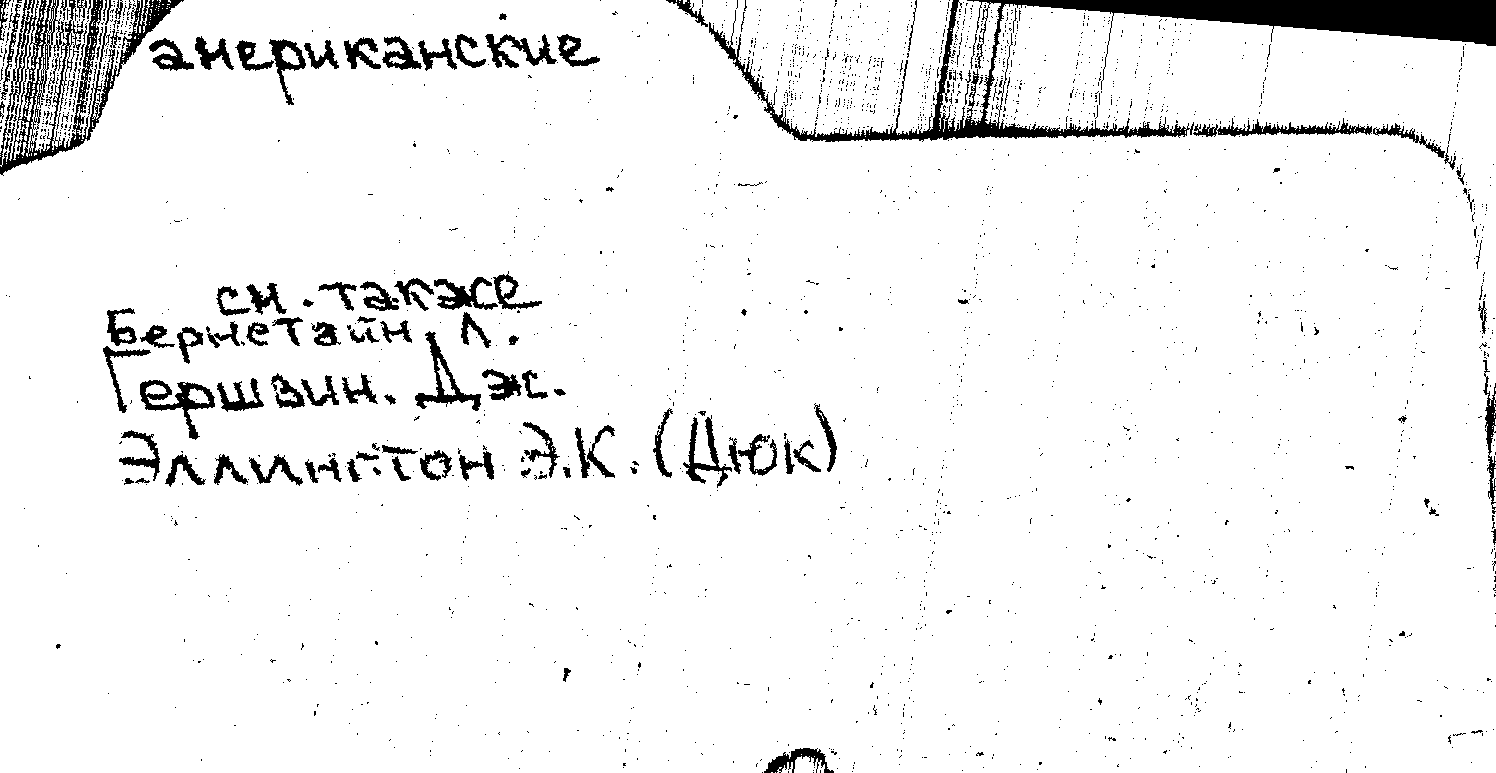 американские
см. также
Бернстайн. Л.
Гершвин. Дж.
Эллингтон Э.К. (Дюк)